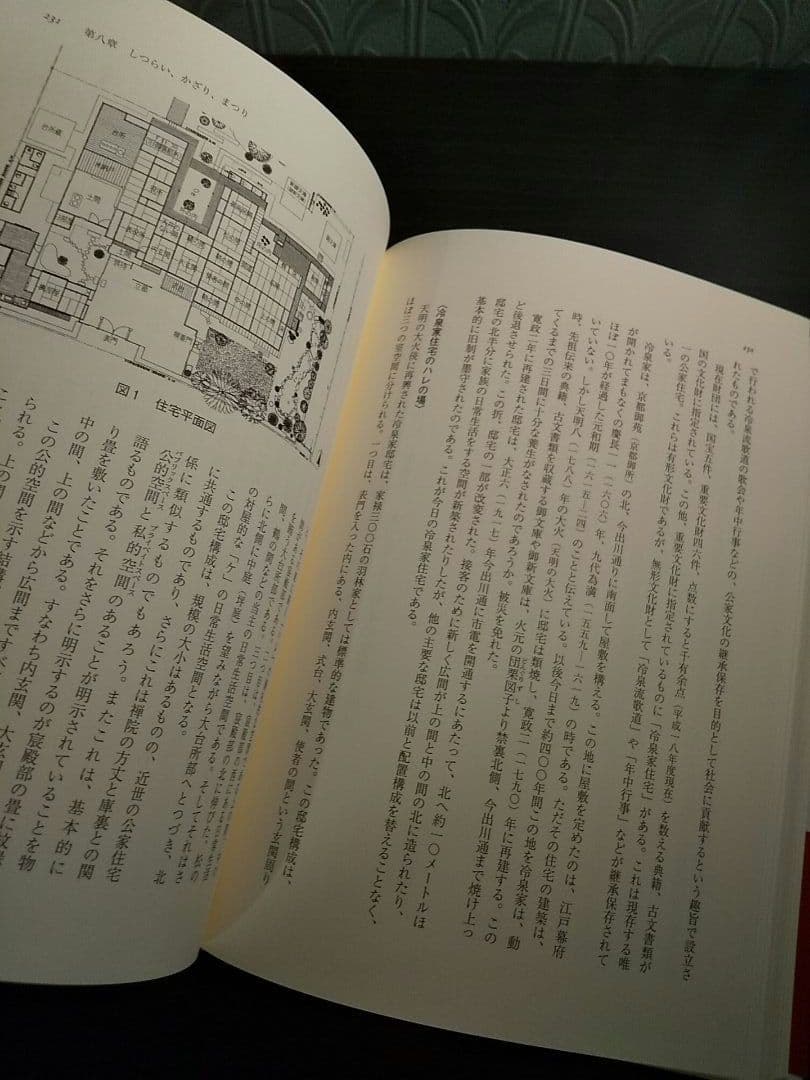 230
で行われる冷泉流歌道の歌会や年中行事などの、公家文化の継承保存を目的として社会に貢献するという趣旨で設立さ
れたものである。
現在財団には、国宝五件、重要文化財四六件、点数にすると千有余点（平成一八年度現在）を数える典籍、古文書類が
国の文化財に指定されている。この他、重要文化財に指定されているものに「冷泉家住宅」がある。これは現存する唯
一の公家住宅。これらは有形文化財であるが、無形文化財として「冷泉流歌道」や「年中行事」などが継承保存されて
いる。
冷泉家は、京都御苑（京都御所）の北、今出川通りに南面して屋敷を構える。この地に屋敷を定めたのは、江戸幕府
が開かれてまもなくの慶長一一（一六〇六）年、九代為満（一五五九—一六一九）の時である。ただその住宅の建築は、
ほぼ一〇年が経過した元和期（一六一五—二四）のことと伝えている。以後今日まで約四〇〇年間この地を冷泉家は、動
いていない。しかし天明八（一七八八）年の大火（天明の大火）に邸宅は類焼し、寛政二（一七九〇）年に再建する。この
時、先祖伝来の典籍、古文書類を収蔵する御文庫や御新文庫は、火元の団栗図子より禁裏北側、今出川通まで焼け上っ
てくるまでの三日間に十分な養生がなされたのであろうか。被災を免れた。
寛政二年に再建された邸宅は、大正六（一九一七）年今出川通に市電を開通するにあたって、北へ約一〇メートルほ
ど後退させられた。この折、邸宅の一部が改変された。接客のために新しく広間が上の間と中の間の北に造られたり、
邸宅の北半分に家族の日常生活をする空間が新築されたりしたが、他の主要な邸宅は以前と配置構成を替えることなく、
基本的に旧制が墨守されたのである。これが今日の冷泉家住宅である。
〈冷泉家住宅のハレの場〉
天明の大火後に再興された冷泉家邸宅は、家禄三〇〇石の羽林家としては標準的な建物であった。この邸宅構成は、
ほぼ三つの室空間に分けられる。一つ目は、表門を入った内にある、内玄関、式台、大玄関、使者の間という玄関回り
232
第八章　しつらい、かざり、まつり
台所
土間
表門
図1　住宅平面図
の対屋的な「ケ」の日常生活空間である。
この邸宅構成は、規模の大小はあるものの、近世の公家住宅
に共通するものであり、さらにこれは禅院の方丈と庫裏との関
係に類似するものでもあろう。またこれは、基本的に
公的空間と私的空間のあることが明示されていることを物
語るものである。それをさらに明示するのが宸殿部の畳に
り畳を敷いたことである。すなわち内玄関、大玄関
中の間、上の間などから広間まですべ
この公的空間を示す
られる。上の間